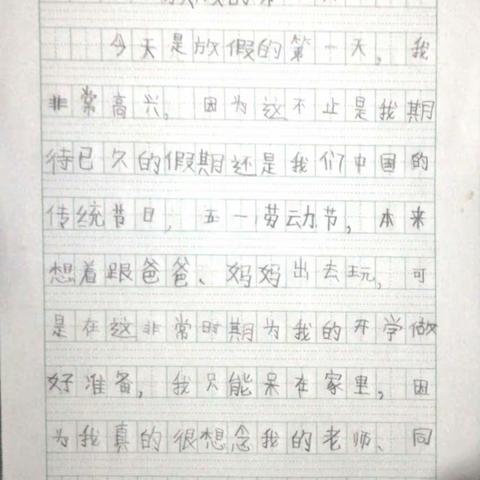 今天是放假的第一天，我
非常高兴，因为这不止是我期
待已久的假期还是我们中国的
传统节日，五一劳动节，本来
想着跟爸爸、妈妈出去玩，可
是在这非常时期为我的开学做
好准备，我只能呆在家里，因
为我真的很想念我的老师、同